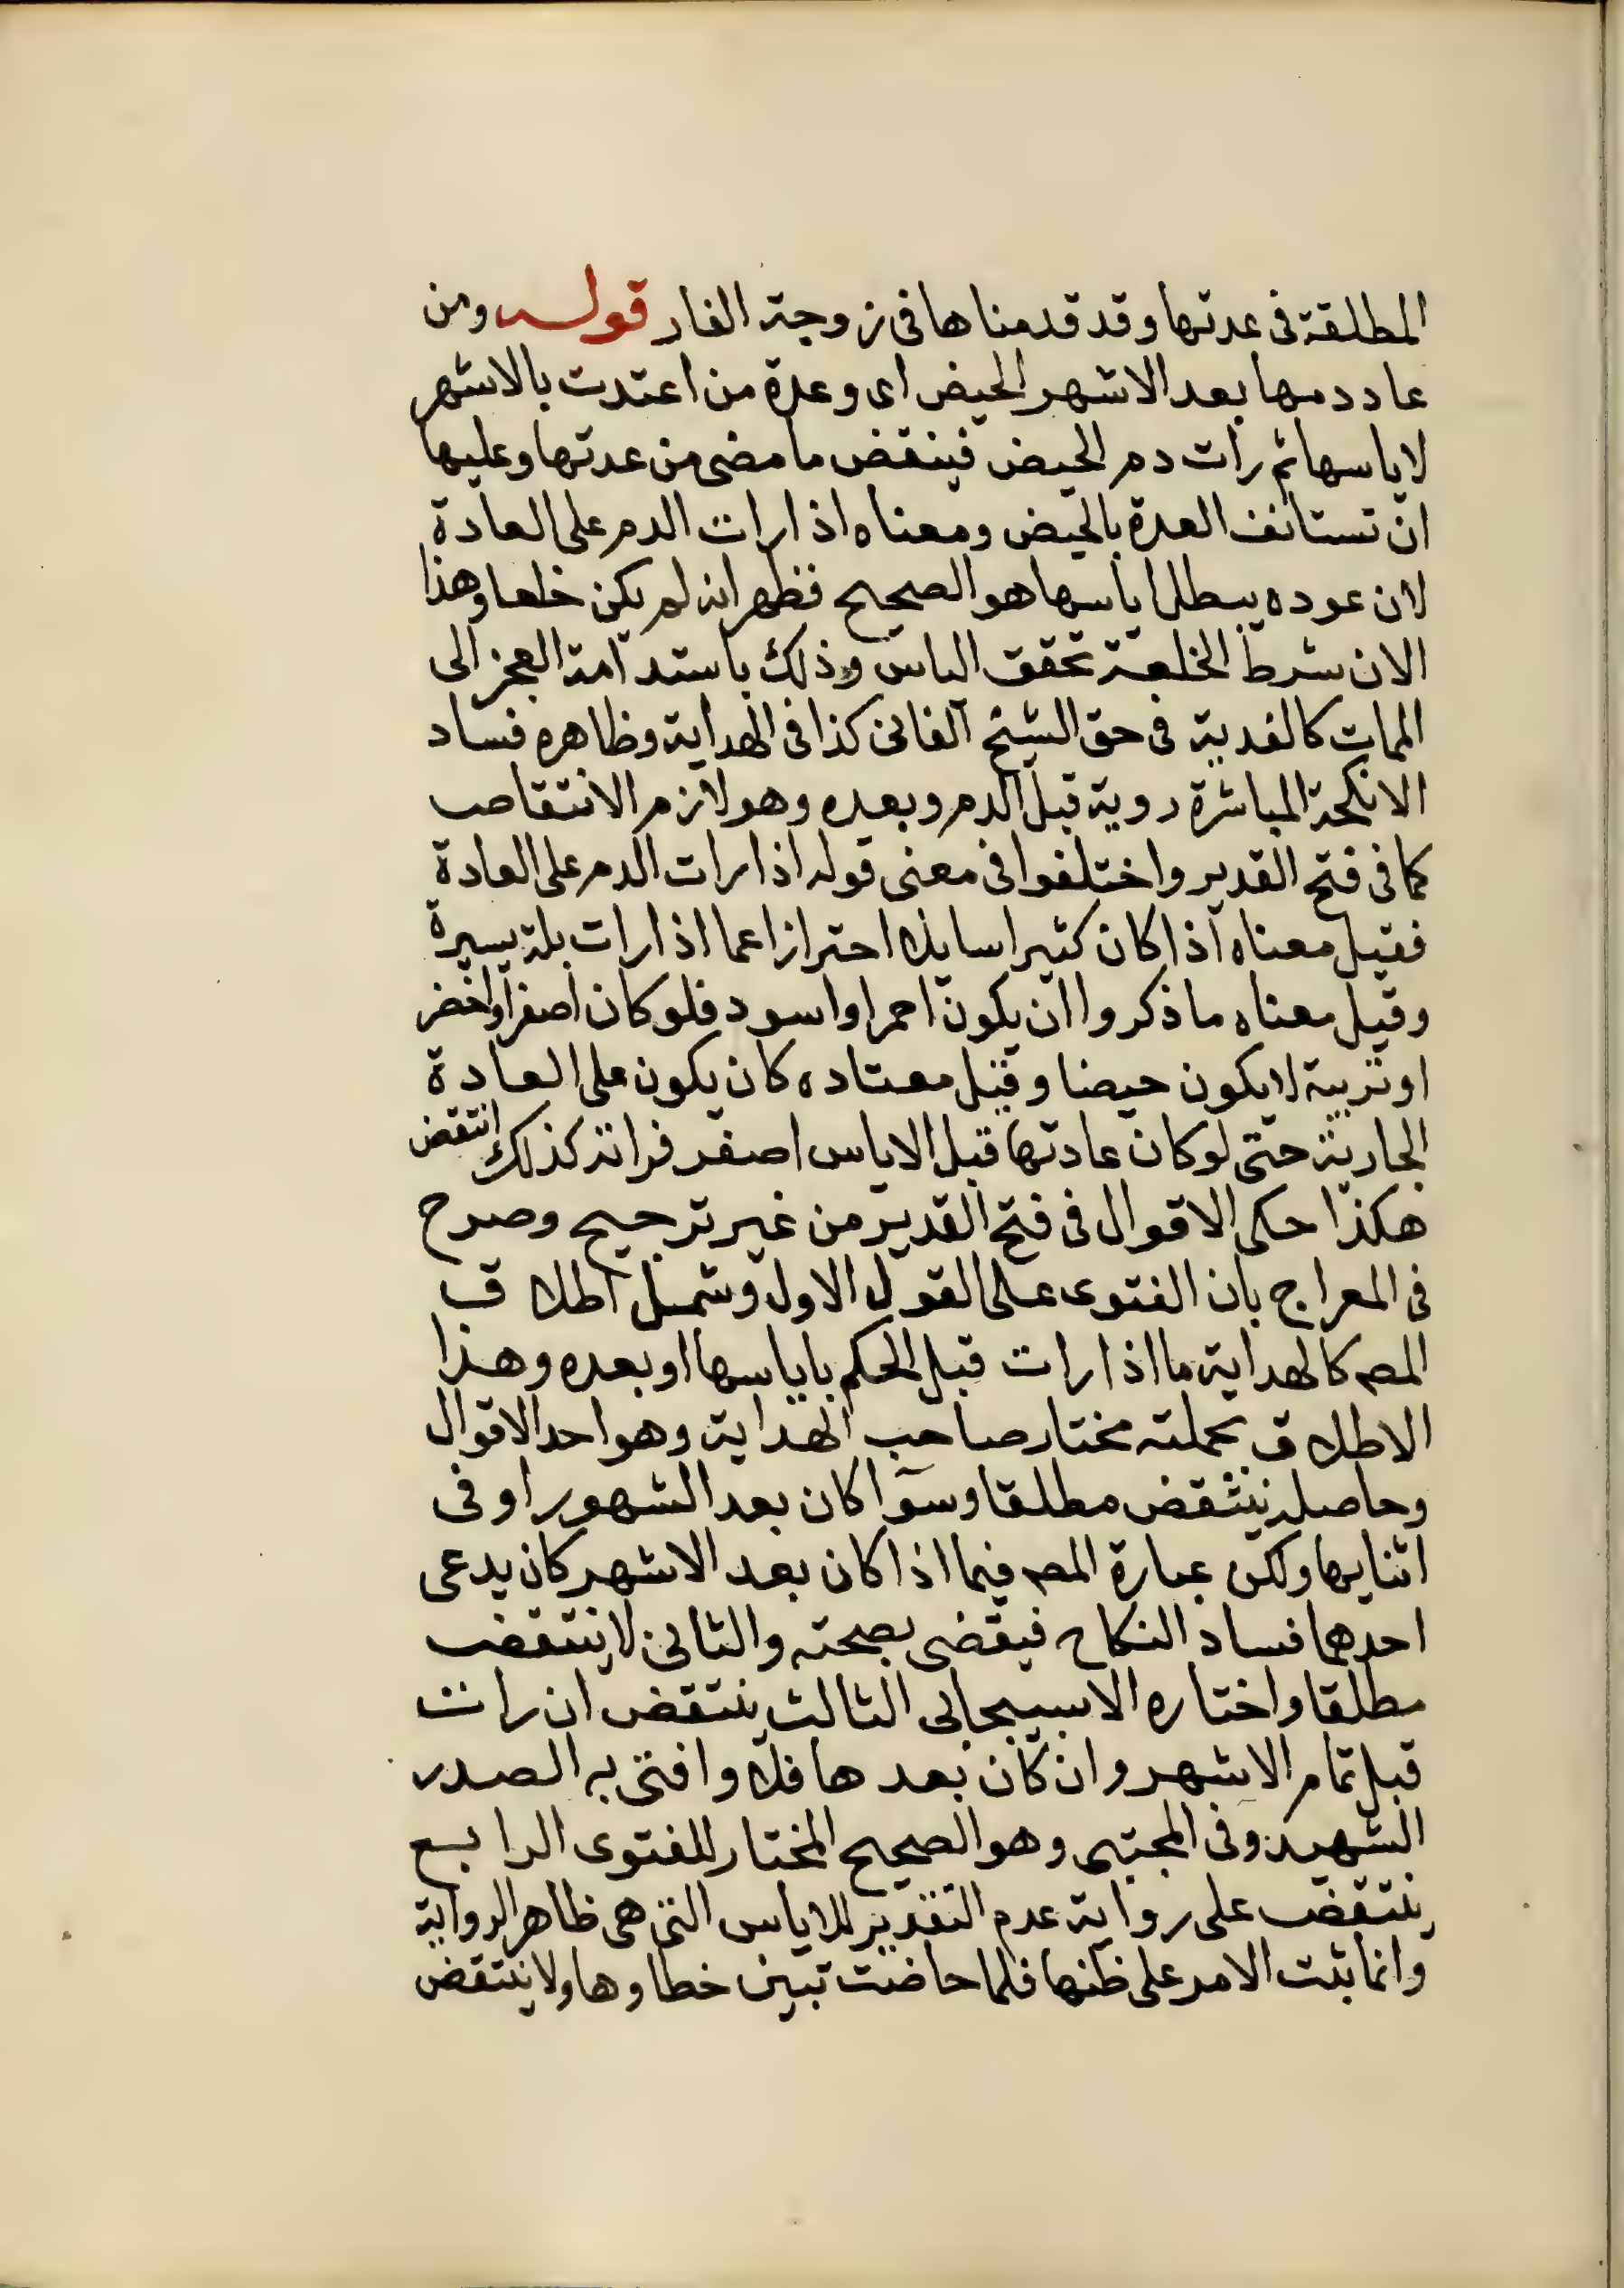 المطلقة فى عدتها وقد قدمناها فى زوجة الفار قوله ومن
عاد دمها بعد الاشهر الحيض اى وعدة من اعتدت بالاشهر
لاياسها ثم رات دم الحيض فينقض ما مضى من عدتها وعليها
ان تستانف العدة بالحيض ومعناه اذا رات الدم على العادة
لان عوده يبطل اياسها هو الصحيح فظهر انه لم يكن خلفا وهذا
الان شرط الخلفية تحقق الياس وذلك باستدامة العجز الى
الممات كالفدية فى حق الشيخ الفانى كذا فى الهداية وظاهره فساد
الانكحة المباشرة روية قبل الدم وبعده وهو لازم الانتقاص
كما فى فتح القدير واختلفوا فى معنى قوله اذا رات الدم على العادة
فقيل معناه اذا كان كثيرا سايلا احترازا عما اذا رات بلة يسيرة
وقيل معناه ما ذكروا ان يكون احمر او اسود فلو كان اصفر او اخضر
او تربية لا يكون حيضا وقيل معتاده كان يكون على العادة
الجارية حتى لو كان عادتها قبل الاياس اصفر فراته كذلك انتقض
هكذا حكى الاقوال فى فتح القدير من غير ترجيح وصرح
فى المعراج بان الفتوى على القول الاول وشمل اطلاق
المص كالهداية ما اذا رات قبل الحكم باياسها او بعده وهذا
الاطلاق بجملته مختار صاحب الهداية وهو احد الاقوال
وحاصله ينتقض مطلقا وسوآ كان بعد الشهور او فى
اثنايها ولكن عبارة المص فيما اذا كان بعد الاشهر كان يدعى
احدهما فساد النكاح فيقضى بصحته والثانى لا ينتقض
مطلقا واختاره الاسبيجابى الثالث ينتقض ان رات
قبل تمام الاشهر وان كان بعدها فلا وافتى به الصدر
الشهيد وفى المجتبى وهو الصحيح المختار للفتوى الرابع
ينتقض على رواية عدم التقدير للاياس التى هى ظاهر الرواية
وانما يثبت الامر على ظنها فلما حاضت تبين خطاوها ولا ينتقض